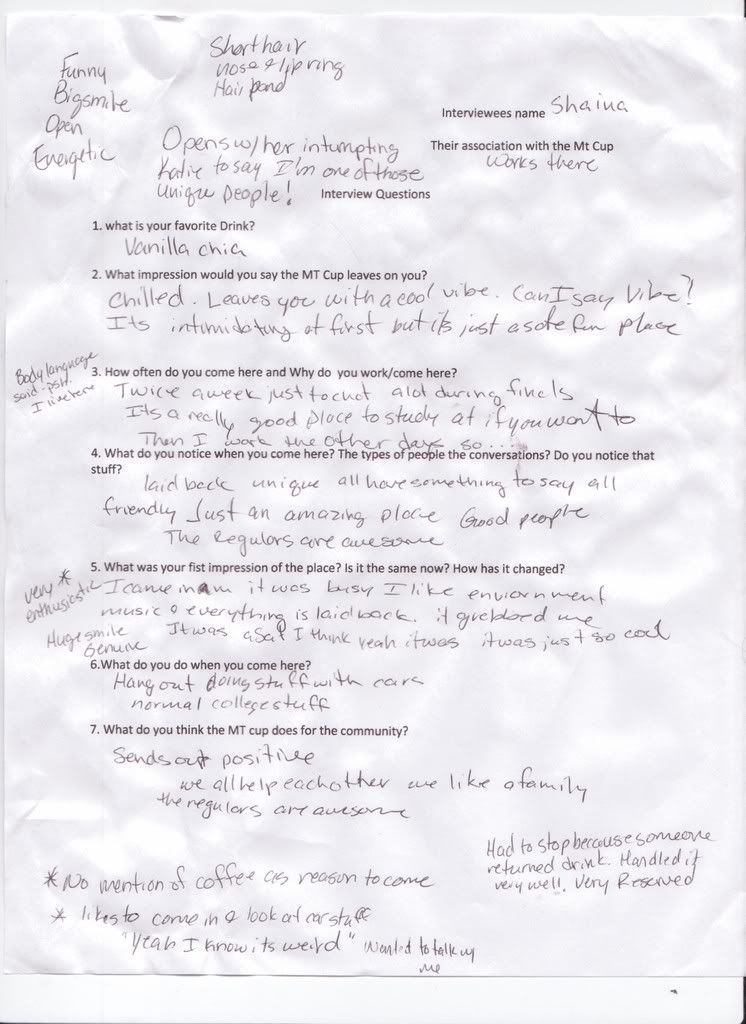 Short hair
nose & lip ring
Hair band
Funny
Bigsmile
Open
Energetic
Interviewees name Shaina
Opens w/ her intumpting
Katie to say I'm one of those
unique people!
Their association with the Mt Cup
works there
Interview Questions
1. what is your favorite Drink?
Vanilla chia
2. What impression would you say the MT Cup leaves on you?
Chilled. Leaves you with a cool vibe. Can I say Vibe?
Its intimidating at first but its just a safe fun place
Body language
said - psh.
I live here
3. How often do you come here and Why do you work/come here?
Twice a week just to chat alot during finals
Its a really good place to study at if you want to
Then I work the other days so...
4. What do you notice when you come here? The types of people the conversations? Do you notice that
stuff?
laid back unique all have something to say all
friendly Just an amazing place Good people
The Regulars are awesome
5. What was your fist impression of the place? Is it the same now? How has it changed?
very *
enthusiastic
Huge smile
Genuine
I came in it was busy I like enviornment
music & everything is laid back. it grabbed me
It was a Sat I think yeah it was it was just so cool
6.What do you do when you come here?
Hang out doing stuff with cars
normal college stuff
7. What do you think the MT cup does for the community?
Sends out positive
we all help each other we like a family
the regulars are awesome
Had to stop because someone
returned drink. Handled it
very well. Very Reserved
* No mention of coffee as reason to come
* likes to come in & look at car stuff
"Yeah I know its weird" Wanted to talk w/
me